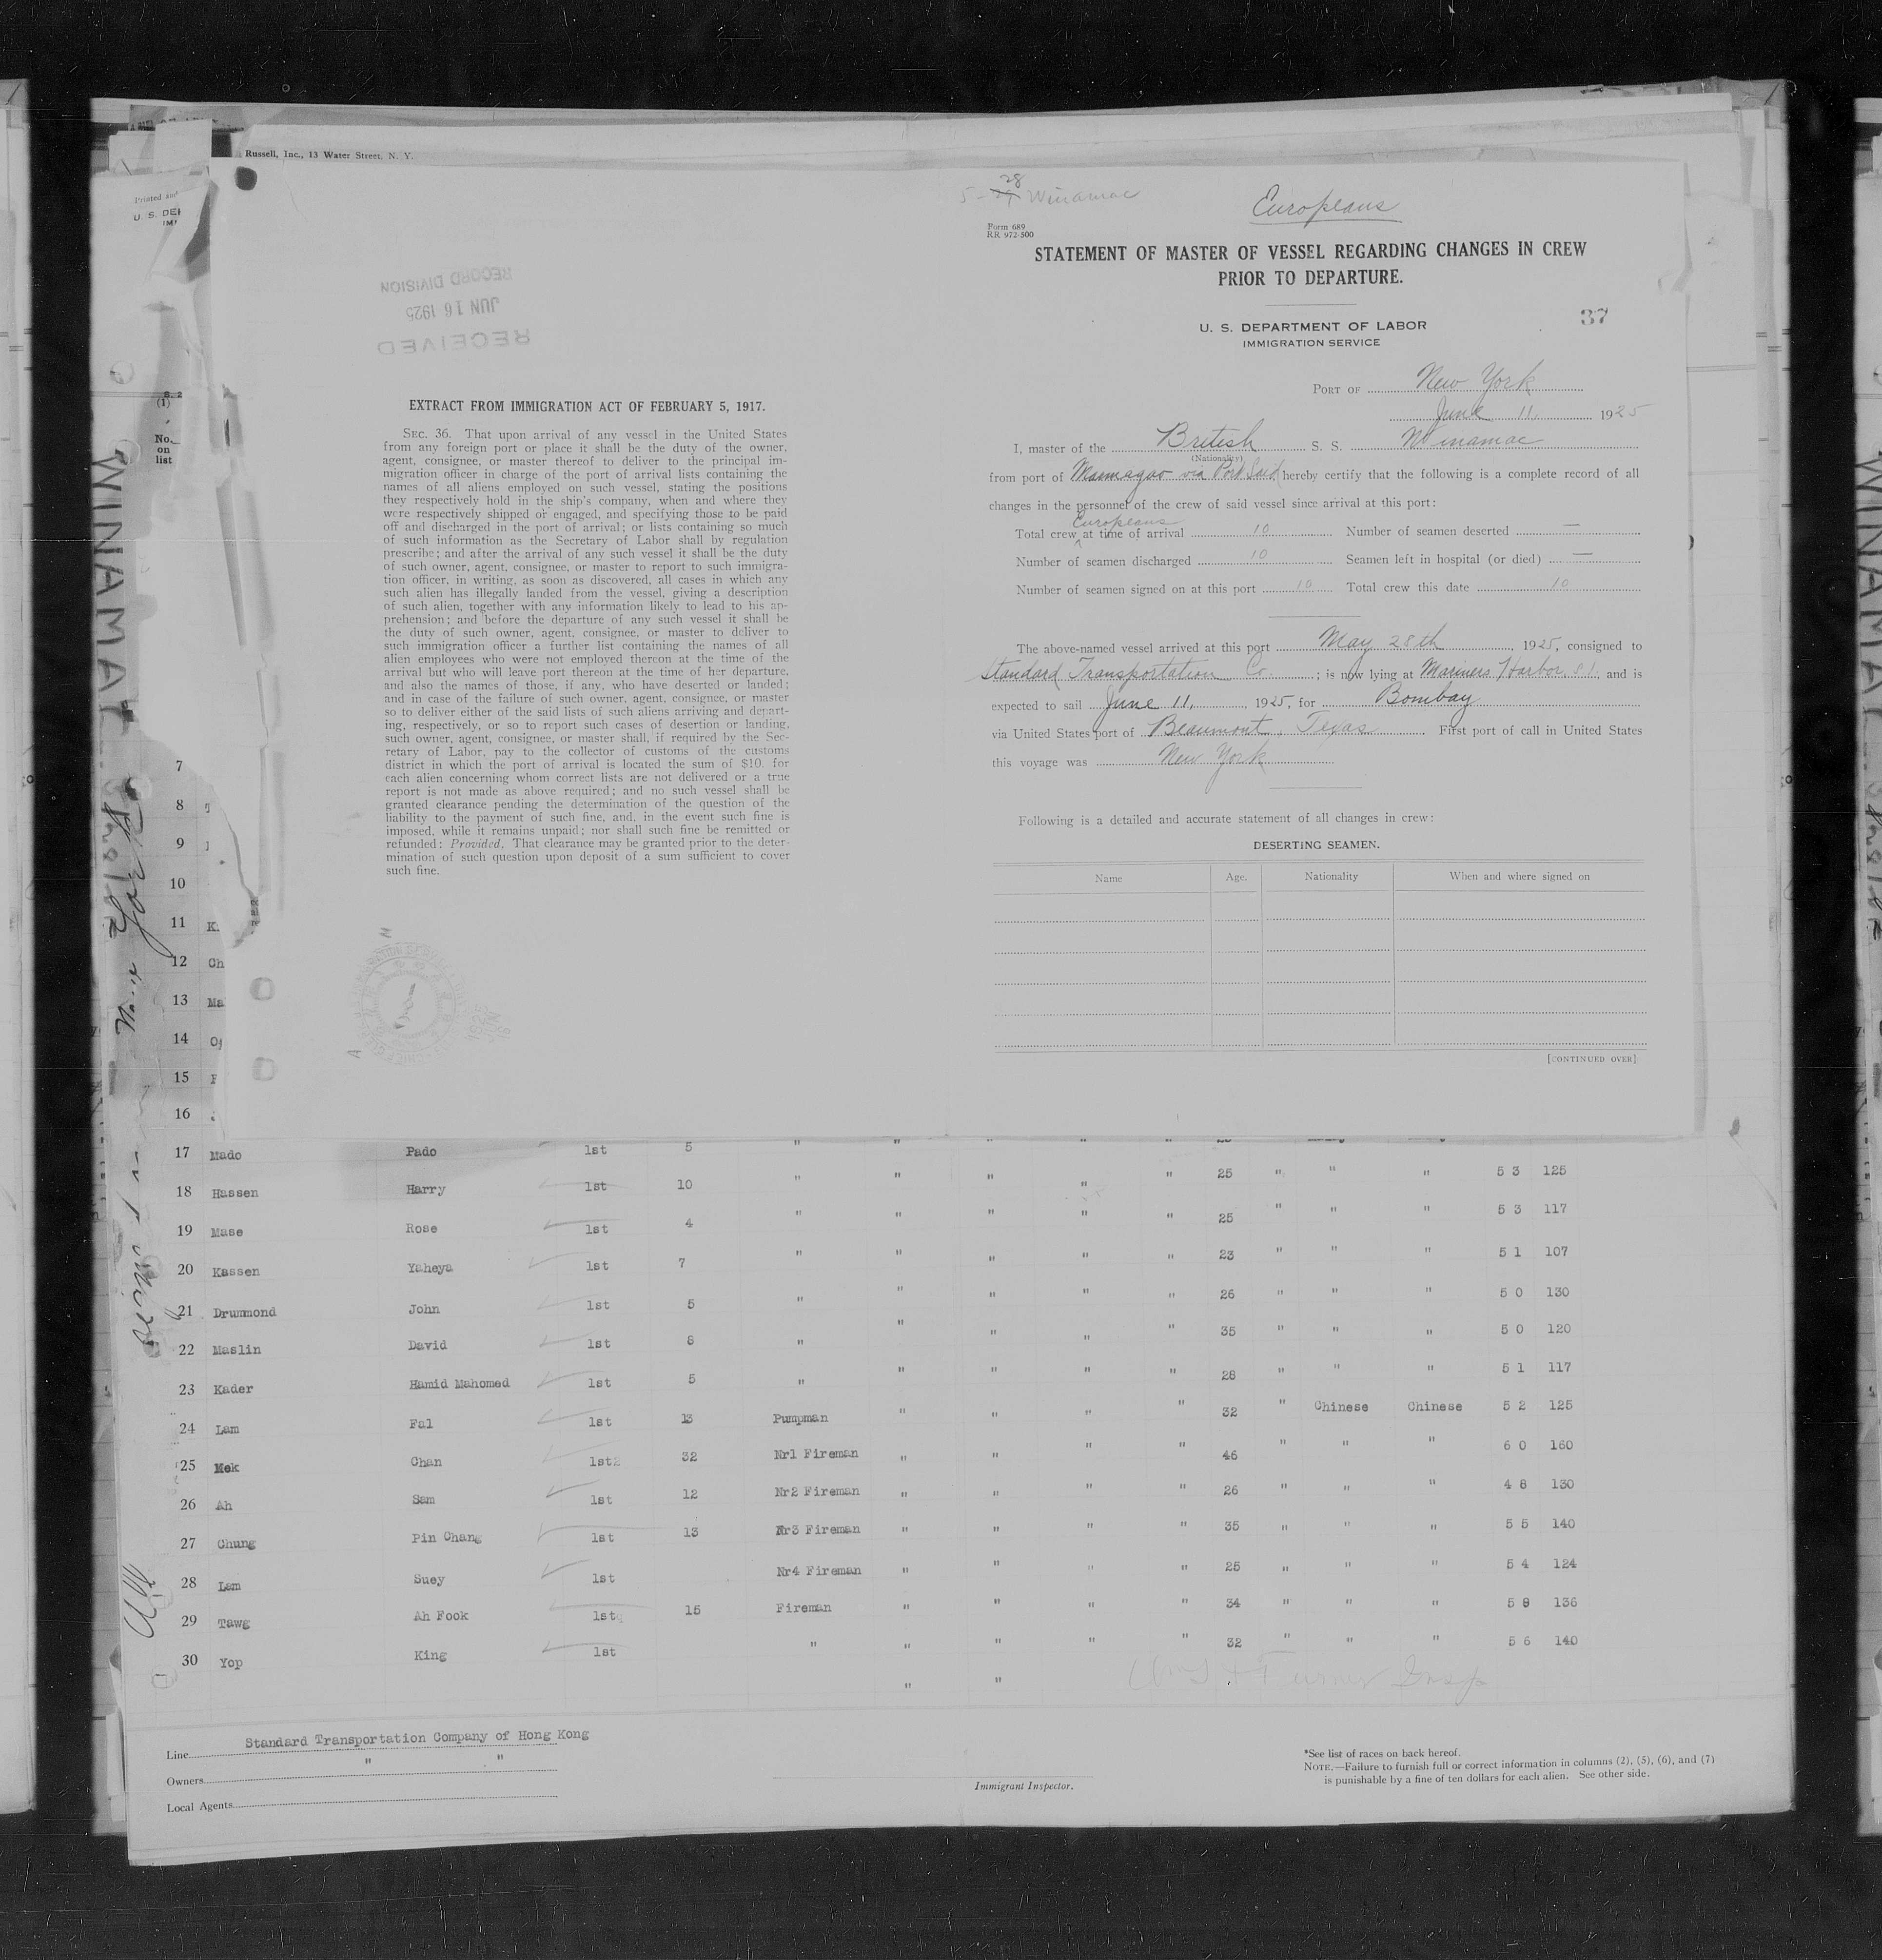 Russell, Inc., 13 Water Street, N. Y.
Printed and
U. S. DE
RECORD DIVISION
JUN 16 1925
RECEIVED
EXTRACT FROM IMMIGRATION ACT OF FEBRUARY 5, 1917.
SEC. 36. That upon arrival of any vessel in the United States
from any foreign port or place it shall be the duty of the owner,
agent, consignee, or master thereof to deliver to the principal im-
migration officer in charge of the port of arrival lists containing the
names of all aliens employed on such vessel, stating the positions
they respectively hold in the ship's company, when and where they
were respectively shipped or engaged, and specifying those to be paid
off and discharged in the port of arrival; or lists containing so much
of such information as the Secretary of Labor shall by regulation
prescribe; and after the arrival of any such vessel it shall be the duty
of such owner, agent, consignee, or master to report to such immigra-
tion officer, in writing, as soon as discovered, all cases in which any
such alien has illegally landed from the vessel, giving a description
of such alien, together with any information likely to lead to his ap-
prehension; and before the departure of any such vessel it shall be
the duty of such owner, agent, consignee, or master to deliver to
such immigration officer a further list containing the names of all
alien employees who were not employed thereon at the time of the
arrival but who will leave port thereon at the time of her departure,
and also the names of those, if any, who have deserted or landed;
and in case of the failure of such owner, agent, consignee, or master
so to deliver either of the said lists of such aliens arriving and depart-
ing, respectively, or so to report such cases of desertion or landing,
such owner, agent, consignee, or master shall, if required by the Sec-
retary of Labor, pay to the collector of customs of the customs
district in which the port of arrival is located the sum of $10. for
each alien concerning whom correct lists are not delivered or a true
report is not made as above required; and no such vessel shall be
granted clearance pending the determination of the question of the
liability to the payment of such fine, and, in the event such fine is
imposed, while it remains unpaid; nor shall such fine be remitted or
refunded: Provided, That clearance may be granted prior to the deter-
mination of such question upon deposit of a sum sufficient to cover
such fine.
5-28 Winamac
Europeans
Form 689
RR 972-500
STATEMENT OF MASTER OF VESSEL REGARDING CHANGES IN CREW
PRIOR TO DEPARTURE.
U. S. DEPARTMENT OF LABOR
IMMIGRATION SERVICE
37
PORT OF New York
June 11, 1925
I, master of the British S. S. Winamac
(Nationality)
from port of Mormagao via Port Said hereby certify that the following is a complete record of all
changes in the personnel of the crew of said vessel since arrival at this port:
Europeans
Total crew at time of arrival 10 Number of seamen deserted —
Number of seamen discharged 10 Seamen left in hospital (or died) —
Number of seamen signed on at this port 10 Total crew this date 10
The above-named vessel arrived at this port May 28th, 1925, consigned to
Standard Transportation Co.; is now lying at Mariners Harbor S.I. and is
expected to sail June 11, 1925, for Bombay
via United States port of Beaumont, Texas. First port of call in United States
this voyage was New York
Following is a detailed and accurate statement of all changes in crew:
DESERTING SEAMEN.
Name Age. Nationality When and where signed on
[CONTINUED OVER]
WINAMAC
New York
(1)
No.
on
list
7
8
9
10
11 K.
12 Ch
13 Ma
14
15
16
17 Mado Pado 1st 5 " " " " "
18 Hassen Harry 1st 10 " " " " " 25 " " " 5 3 125
19 Mase Rose 1st 4 " " " " " 25 " " " 5 3 117
20 Kassen Yaheya 1st 7 " " " " " 23 " " " 5 1 107
21 Drummond John 1st 5 " " " " " 26 " " " 5 0 130
22 Maslin David 1st 8 " " " " " 35 " " " 5 0 120
23 Kader Hamid Mahomed 1st 5 " " " " " 28 " " " 5 1 117
24 Lam Fal 1st 13 Pumpman " " " " 32 " Chinese Chinese 5 2 125
25 Mek Chan 1st 32 Nr1 Fireman " " " " 46 " " " 6 0 160
26 Ah Sam 1st 12 Nr2 Fireman " " " " 26 " " " 4 8 130
27 Chung Pin Chang 1st 13 Nr3 Fireman " " " " 35 " " " 5 5 140
28 Lam Suey 1st Nr4 Fireman " " " " 25 " " " 5 4 124
29 Tawg Ah Fook 1st 15 Fireman " " " " 34 " " " 5 8 136
30 Yop King 1st " " " " " 32 " " " 5 6 140
" "
Turner Insp
Line Standard Transportation Company of Hong Kong
Owners " "
Local Agents
Immigrant Inspector.
*See list of races on back hereof.
NOTE.—Failure to furnish full or correct information in columns (2), (5), (6), and (7)
is punishable by a fine of ten dollars for each alien. See other side.